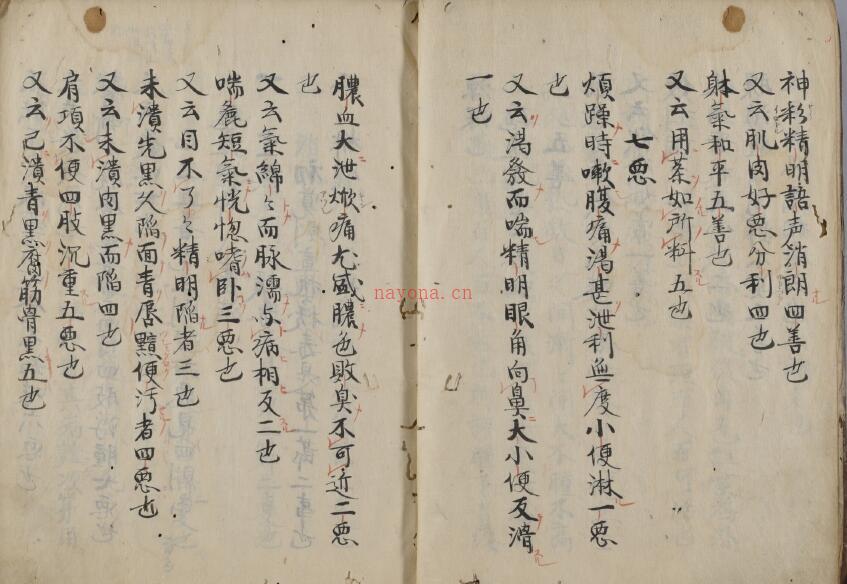 神彩精明語声清朗四善也
又云肌肉好悪分利四也
躰氣和平五善也
又云用薬如所料五也
七悪
煩躁時嗽腹痛渇甚泄利無度小便淋一悪
也
又云渇發而喘精明眼角向鼻大小便反滑
一也
膿血大泄焮痛尤盛膿色敗臭不可近二悪
也
又云氣綿々而脉濡与病相反二也
喘麁短氣恍惚嗜卧三悪也
又云目不了々精明陥者三也
未潰先黒久陥面青唇黯便汚者四悪也
又云未潰肉黒而陥四也
肩項不便四肢沉重五悪也
又云已潰青黒腐筋骨黒五也
nayona.cn